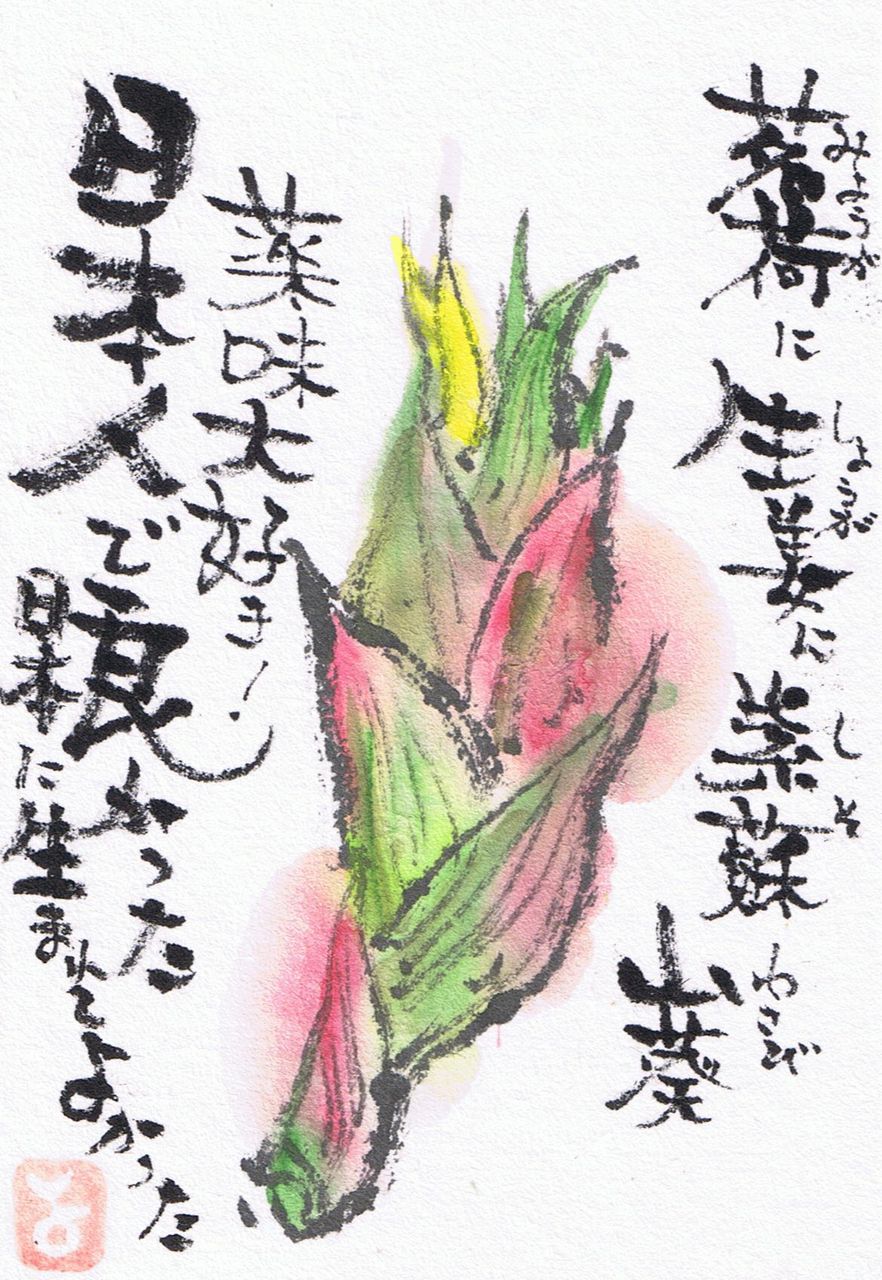 茗荷に生姜に紫蘇
みょうが しょうが しそ
山葵
わさび
薬味大好き!
日本人で良かった
日本に生まれてよかった